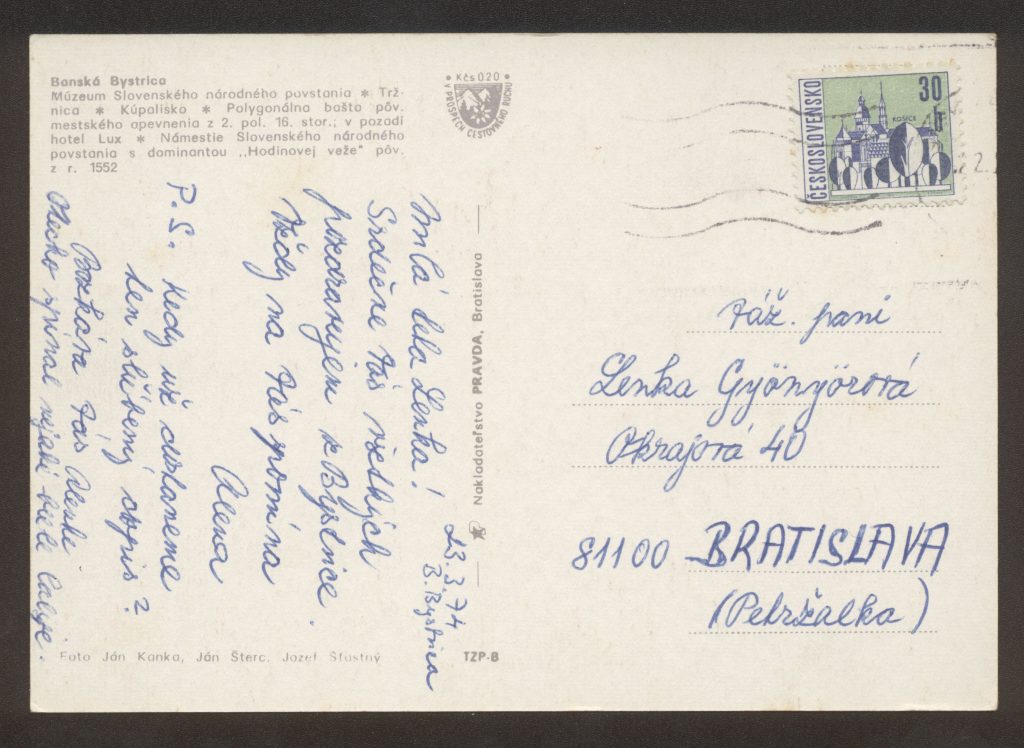 Banská Bystrica
Múzeum Slovenského národného povstania * Trž-
nica * Kúpalisko * Polygonálna bašta pôv.
mestského opevnenia z 2. pol. 16. stor.; v pozadí
hotel Lux * Námestie Slovenského národného
povstania s dominantou „Hodinovej veže" pôv.
z r. 1552
Kčs 020
V PROSPECH CESTOVNÉHO RUCHU
ČESKOSLOVENSKO
30 h
KOŠICE
23.3.74
B. Bystrica
Milá teta Lenka!
Srdečne Vás všetkých
pozdravujem z Bystrice.
Vždy na Vás spomína
Alena
P.S. Kedy už dostaneme
ten sľúbený
opis?
Bozkáva Vás
Očko spomínal nejaké biele
Nakladateľstvo PRAVDA, Bratislava
Foto Ján Kanka, Ján Šterc, Jozef Šťastný
TZP-B
Váž. pani
Lenka Gyönyörová
Okrajová 40
81100 BRATISLAVA
(Petržalka)